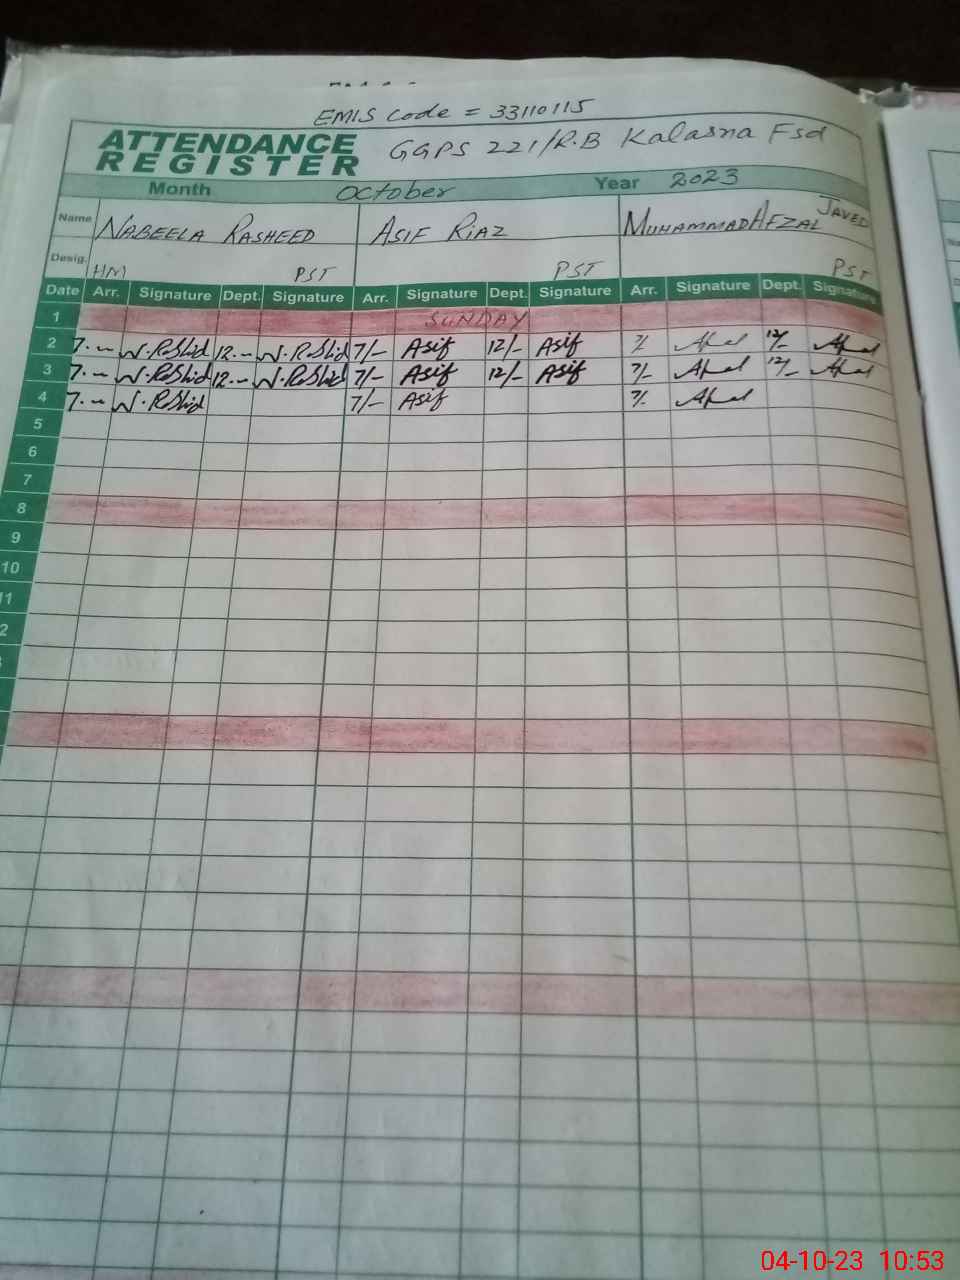 EMIS code = 33110115
ATTENDANCE REGISTER GGPS 221/R.B Kalasna Fsd
Month October Year 2023
Name NABEELA RASHEED ASIF RIAZ MUHAMMAD AFZAL JAVED
Desig. HM PST PST PST
Date Arr. Signature Dept. Signature Arr. Signature Dept. Signature Arr. Signature Dept. Signature
1 SUNDAY
2 7.-- N.Rashid 12.-- N.Rashid 7/- Asif 12/- Asif 7/- Afzal 12/- Afzal
3 7.-- N.Rashid 12.-- N.Rashid 7/- Asif 12/- Asif 7/- Afzal 12/- Afzal
4 7.-- N.Rashid 7/- Asif 7/- Afzal
5
6
7
8
9
10
11
2
04-10-23 10:53